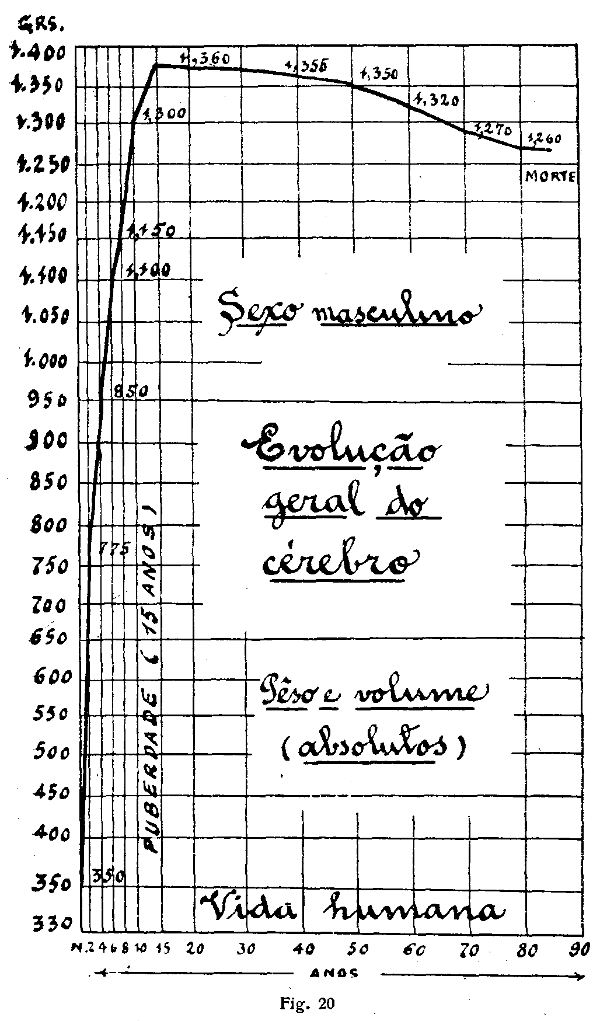 GRS.
1.400
1.350
1.300
1.250
1.200
1.150
1.100
1.050
1.000
950
900
850
800
750
700
650
600
550
500
450
400
350
330
1,360
1,355
1,350
1,320
1,270
1,260
MORTE
1,300
1,150
1,100
850
775
350
PUBERDADE (15 ANOS)
Sexo masculino
Evolução
geral do
cérebro
Pêso e volume
(absolutos)
Vida humana
N. 2 4 6 8 10 15 20 30 40 50 60 70 80 90
ANOS
Fig. 20